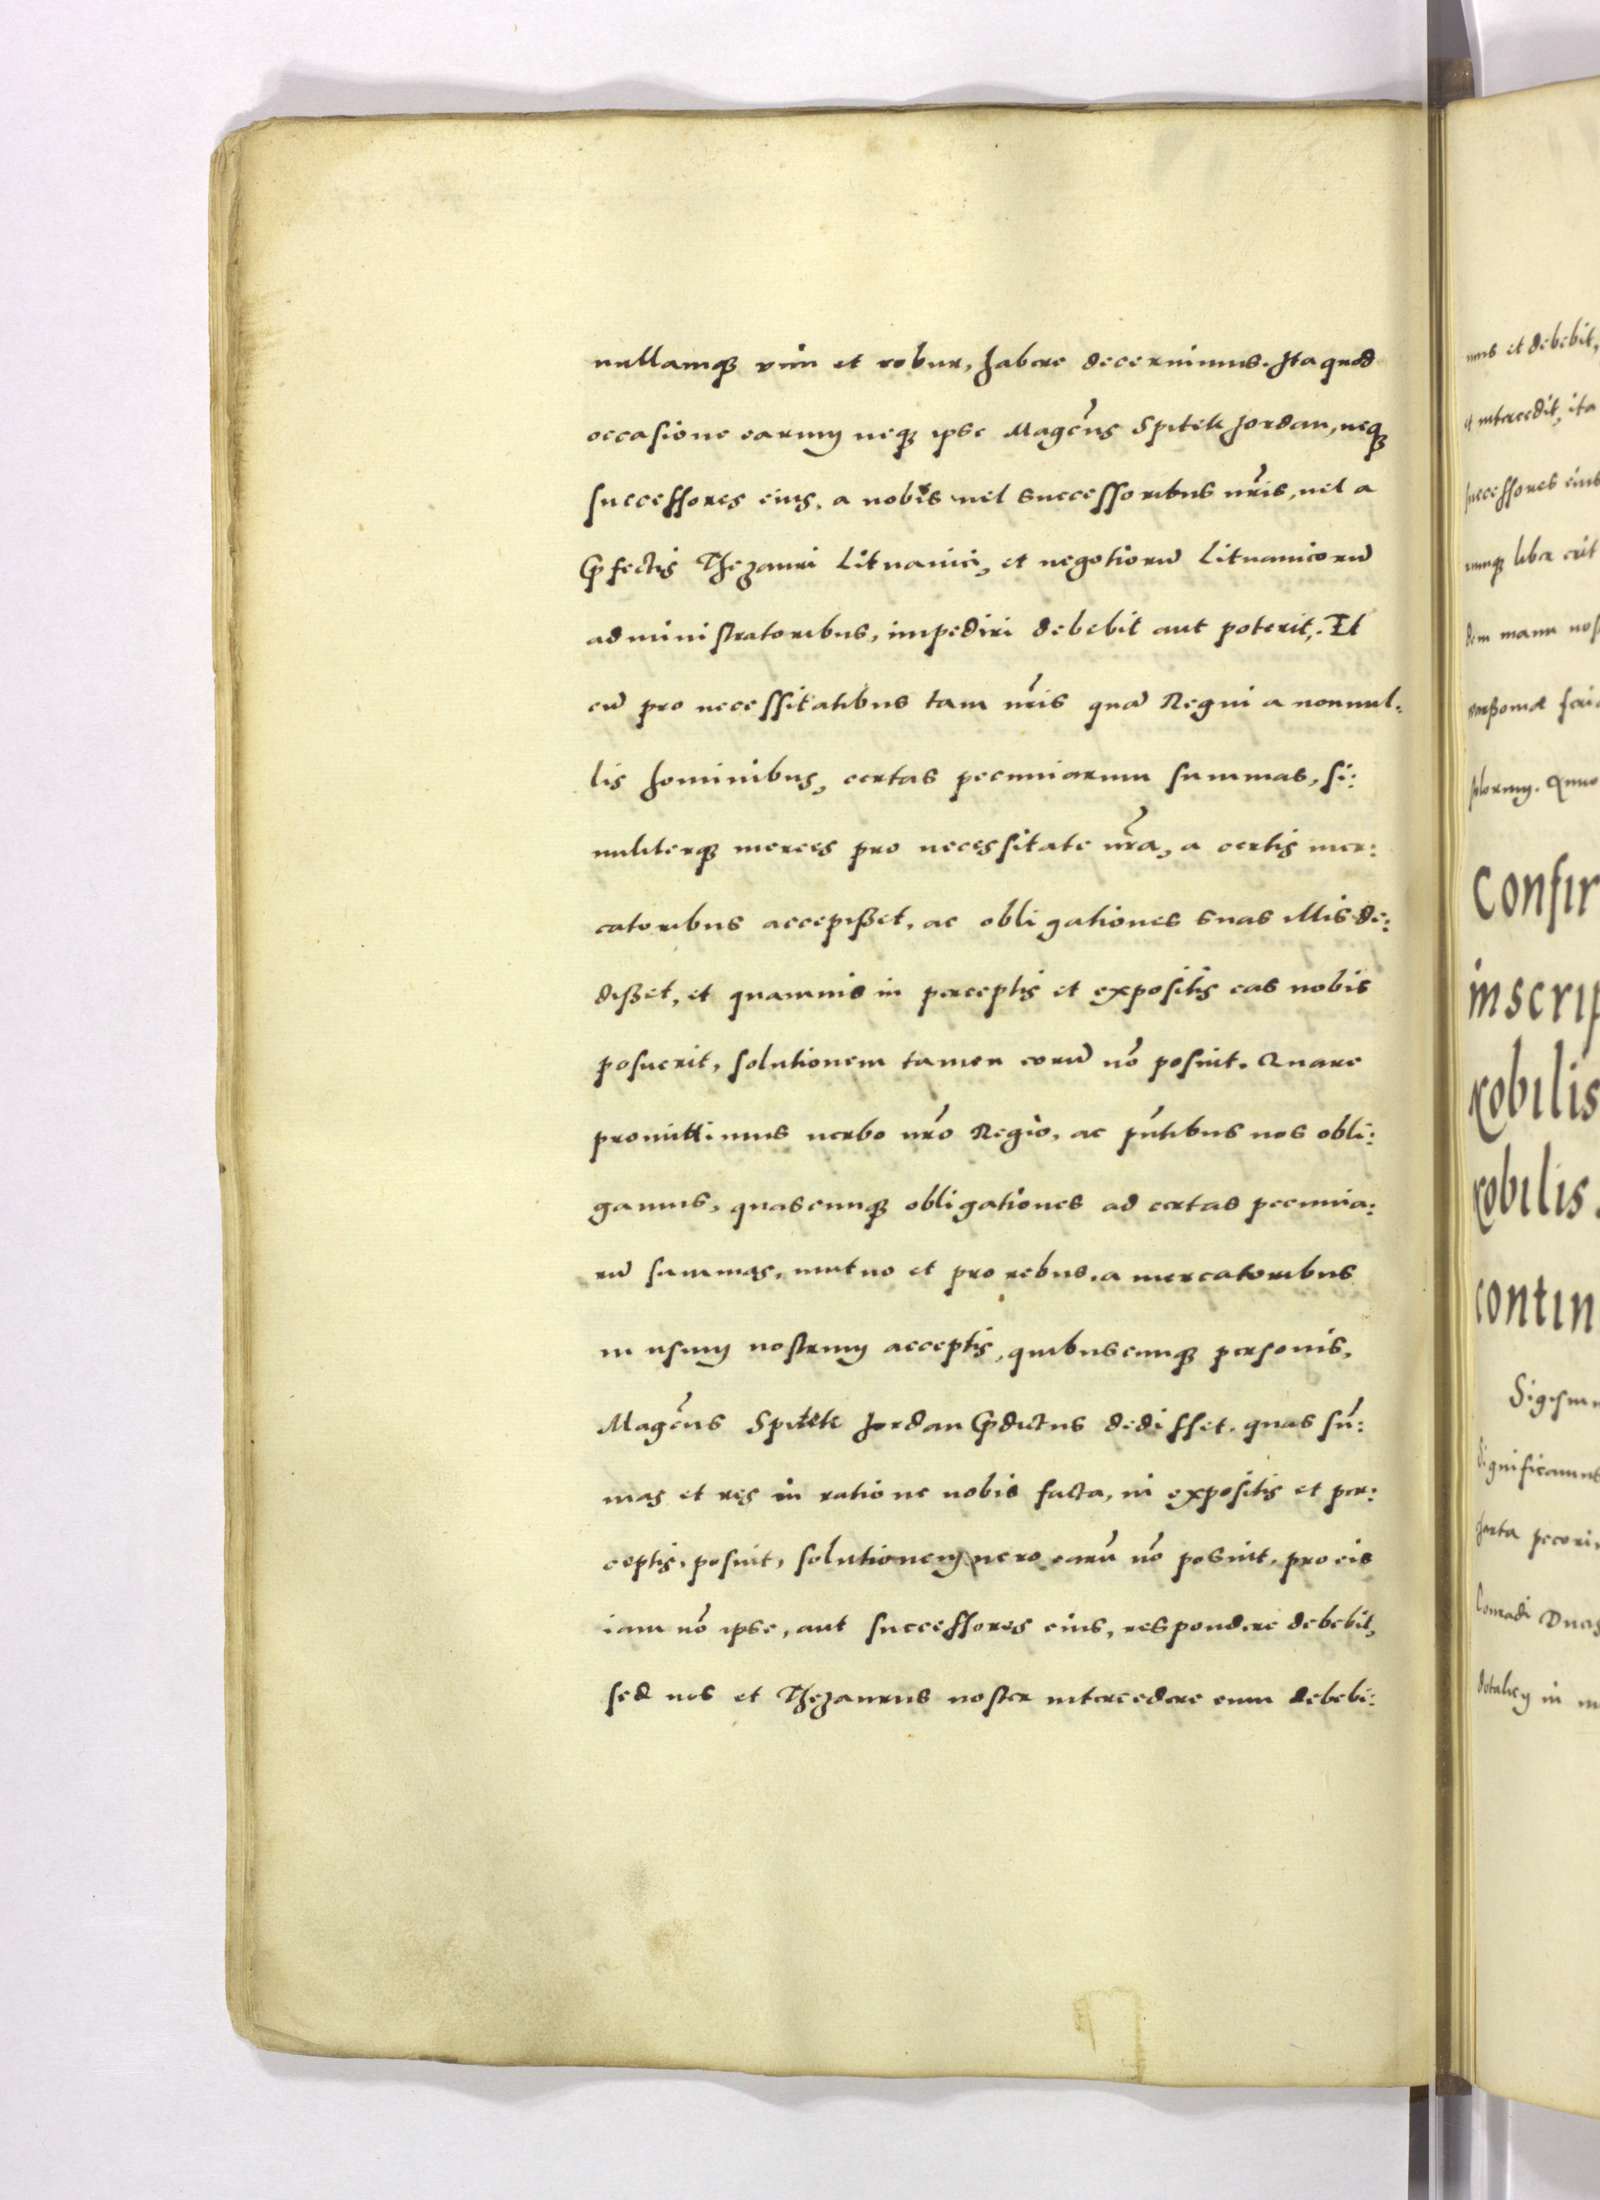 nullamq₃ vim et robur, habere decernimus. Ita quod
occasione earum neq₃ ipse Magcus Spitek Jordan, neq₃
successores eius, a nobis uel successoribus nris, uel a
Pfectis Thezauri Lituanici, et negotioru Lituanicoru
administratoribus, impediri debebit aut poterit. Et
cu pro necessitatibus tam nris qua Regni a nonnul:
lis hominibus, certas pecuniarum summas, si:
militerq₃ merces pro necessitate nra, a certis mer:
catoribus accepißet, ac obligationes suas illis de:
dißet, et quamuis in perceptis et expositis eas nobis
posuerit, solutionem tamen eoru no posuit. Quare
promittimus uerbo nro Regio, ac pntibus nos obli:
gamus, quascunq₃ obligationes ad certas pecunia:
ru summas, mutuo et pro rebus, a mercatoribus
in usum nostrum acceptis, quibuscunq₃ personis,
Magcus Spitek Jordan Pdictus dedisset, quas su:
mas et res in ratione nobis facta, in expositis et per:
ceptis, posuit, solutionem uero earu no posuit, pro eis
iam no ipse, aut successores eius, respondere debebit,
sed nos et Thezaurus noster intercedere eum debebi:
mus et debebit,
et intercedit, ita
successores eius
rumq₃ liber erit
dem manu nos
solorum. Anno
Confir
inscrip
Nobilis
Nobilis
contin
Sigism
Significamus